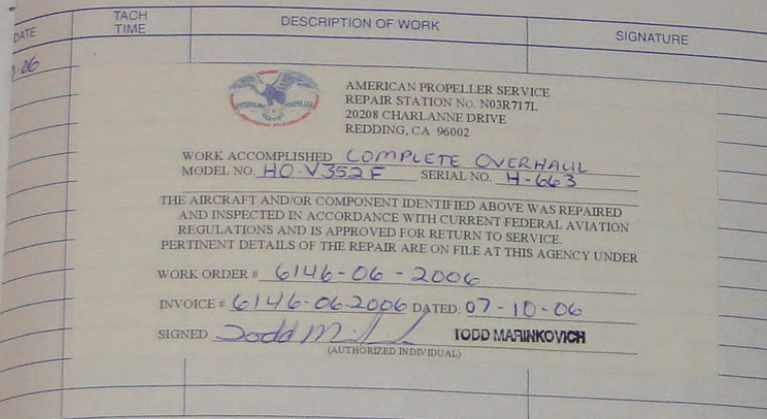 DATE TACH TIME DESCRIPTION OF WORK SIGNATURE
AMERICAN PROPELLER SERVICE
REPAIR STATION No. N03R717L
20208 CHARLANNE DRIVE
REDDING, CA 96002
WORK ACCOMPLISHED COMPLETE OVERHAUL
MODEL NO. HO-V352F SERIAL NO. H-663
THE AIRCRAFT AND/OR COMPONENT IDENTIFIED ABOVE WAS REPAIRED
AND INSPECTED IN ACCORDANCE WITH CURRENT FEDERAL AVIATION
REGULATIONS AND IS APPROVED FOR RETURN TO SERVICE.
PERTINENT DETAILS OF THE REPAIR ARE ON FILE AT THIS AGENCY UNDER
WORK ORDER # 6146-06-2006
INVOICE # 6146-06-2006 DATED: 07-10-06
SIGNED Todd M TODD MARINKOVICH
(AUTHORIZED INDIVIDUAL)